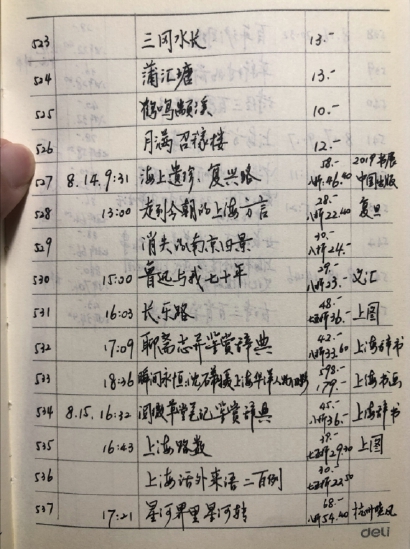 523 三冈水长 13.-
524 蒲汇塘 13.-
525 鹤鸣颛溪 10.-
526 月满召稼楼 12.-
527 8.14,9:31 海上遗珍:复兴路 58.- 八折:46.40 2019书展 中国出版
528 13:00 走到今朝的上海方言 28.- 八折22.40 复旦
529 消失的南京旧景 30.- 八折24.-
530 15:00 鲁迅与我七十年 29.- 八折23.- 文汇
531 16:03 长乐路 48.- 七五折36.- 上图
532 17:09 聊斋志异鉴赏辞典 42.- 八折33.60 上海辞书
533 18:36 瞬间永恒: 上海华洋人物 598.- 179.- 上海书画
534 8.15,16:32 阅微草堂笔记鉴赏辞典 45.- 八折36.- 上海辞书
535 16:43 上海路数 39.- 七五折29.30 上图
536 上海话外来语二百例 30.- 七五折22.50
537 17:21 星河界里星河转 68.- 八折54.40 杭州晓风
deli